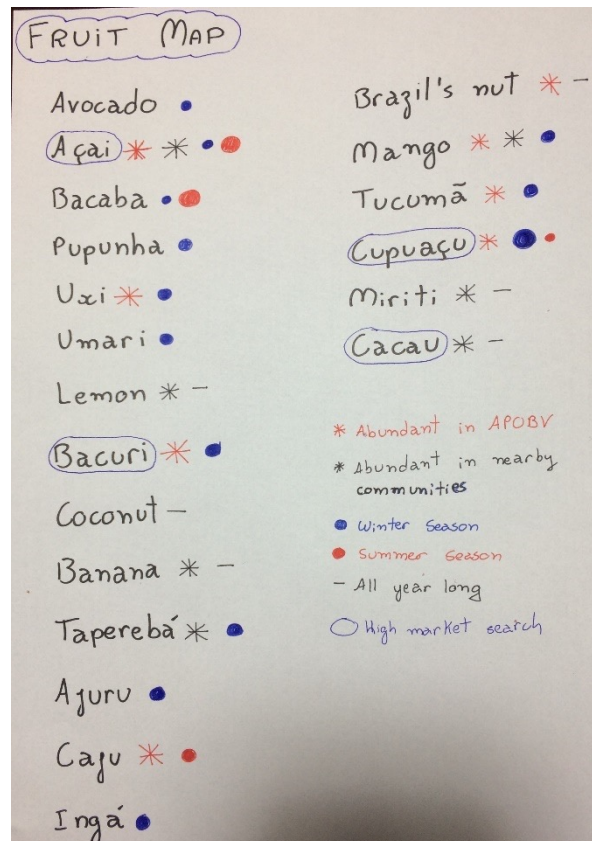 FRUIT MAP
Avocado
Açai
Bacaba
Pupunha
Uxi
Umari
Lemon
Bacuri
Coconut
Banana
Taperebá
Ajuru
Caju
Ingá
Brazil's nut
Mango
Tucumã
Cupuaçu
Miriti
Cacau
Abundant in APOBV
Abundant in nearby
communities
Winter Season
Summer Season
All year long
High market search